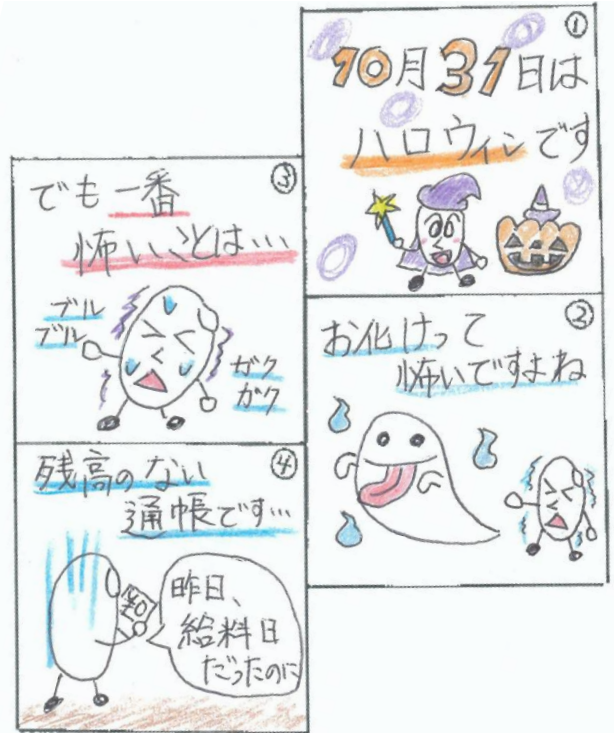 ①
10月31日は
ハロウィンです
②
お化けって
怖いですよね
③
でも一番
怖いことは…
ブル
ブル
ガク
ガク
④
残高のない
通帳です…
¥0
昨日、
給料日
だったのに